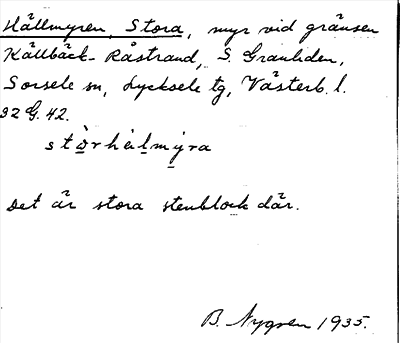 Hällmyren, Stora, myr vid gränsen
Källbäck-Råstrand, S. Granliden,
Sorsele sn, Lycksele tg, Västerb. l.
32 G. 42.
stòrhàlmýra
Det är stora stenblock där.
B. Nygren 1935.